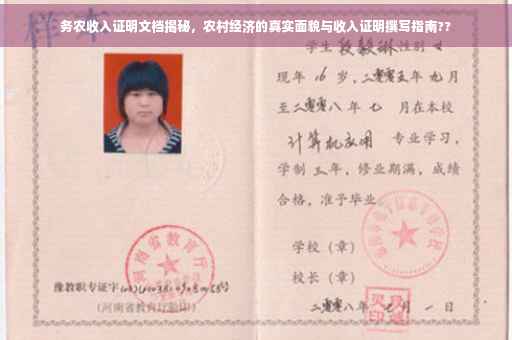 务农收入证明文档揭秘，农村经济的真实面貌与收入证明撰写指南??
样本
学生段毅琳性别女
现年16岁，二零零五年九月
至二零零八年七月在本校
计算机应用专业学习，
学制三年，修业期满，成绩
合格，准予毕业。
学校（章）
校长（章）
河南省教育厅
豫教职专证字
（河南省教育厅验印）
二零零八年七月一日